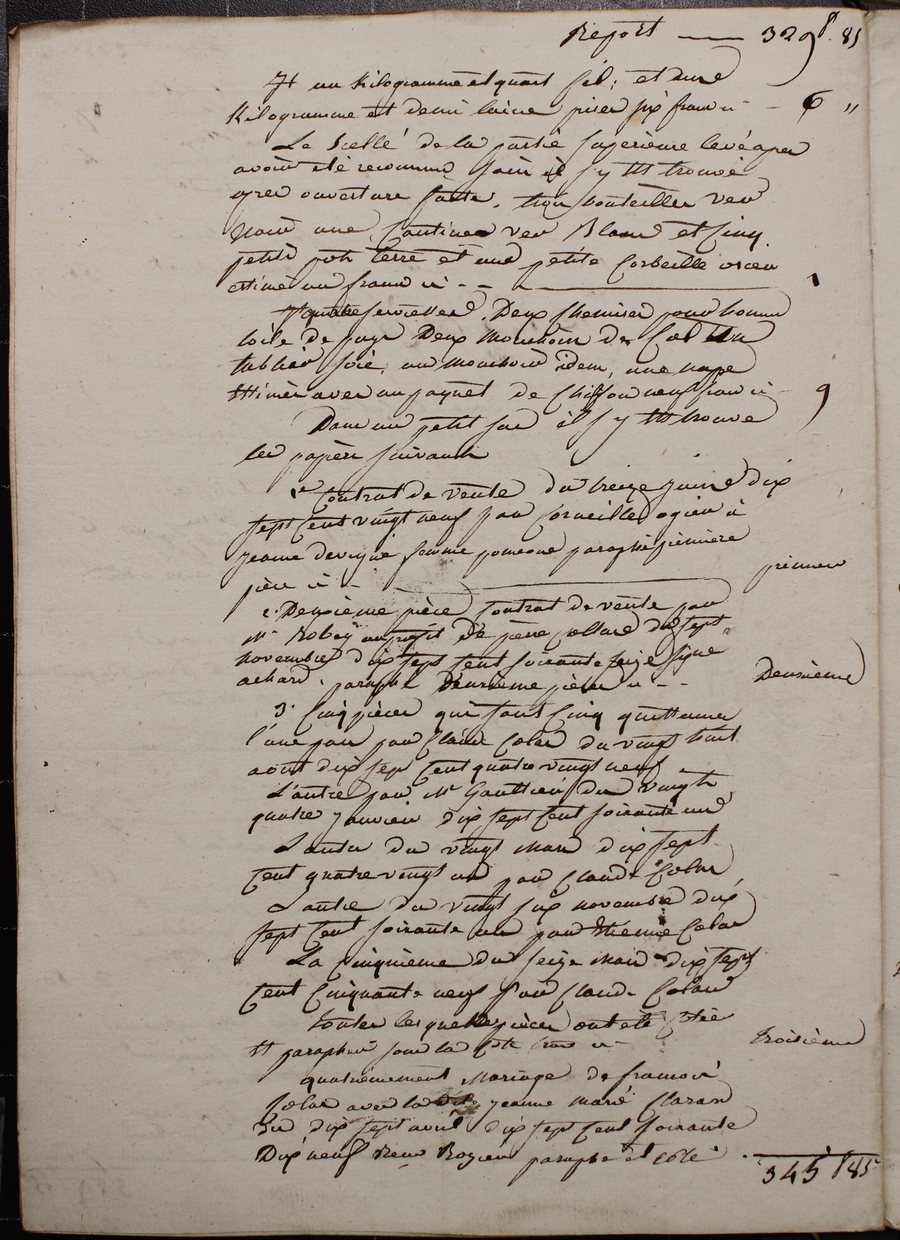 Report — 329 f. 85
It un Kilogramme et quart fil; et une
Kilogramme et demi laine prisés six francs ci - 6 "
Le scellé de la partie supérieure levé apres
avoir été reconnu sain il s'y est trouvé
apres ouverture faitte, trois bouteilles ver
noir une ver Blanc et Cinq
petits pots terre et une petite Corbeille osier
estimé un franc ci - - 1
It quatre serviettes, Deux Chemises pour homme
toile de pays Deux mouchoirs de Col un
tablier soie, un mouchoir idem, une nape
estimés avec un paquet de Chiffon neuf francs ci - 9
Dans un petit sac il s'y est trouvé
les papiers suivants
1° Contrat de vente du treize juin dix
sept Cent vingt neuf par Corneille ogier à
jeanne femme paraphé premiere
piece ci - premiere
2° Deuxième pièce Contrat de vente par
Mr au profit De pierre Collard du sept
novembre dix sept Cent soixante seize signé
achard. paraphé Deuxieme pièce ci - - Deuxieme
3° Cinq pièces qui sont Cinq quittances
l'une par Claude Colas du vingt huit
aout dix sept Cent quatre vingt neuf
L'autre par Mr Gautier du vingt
quatre janvier dix sept Cent soixante un
L'autre du vingt Mars dix sept
Cent quatre vingt un par Claude Colas
L'autre du vingt six novembre dix
sept Cent soixante un par Etienne Colas
La Cinquième du seize Mars dix sept
Cent Cinquante neuf par Claude Colas
toutes lesquelles pièces ont été Cotée
et paraphées sous la Cote trois ci - troisième
quatriemement Mariage de francois
Colas avec la jeanne marie
du dix sept avril dix sept Cent soixante
Dix neuf paraphé et Coté
345 f 85